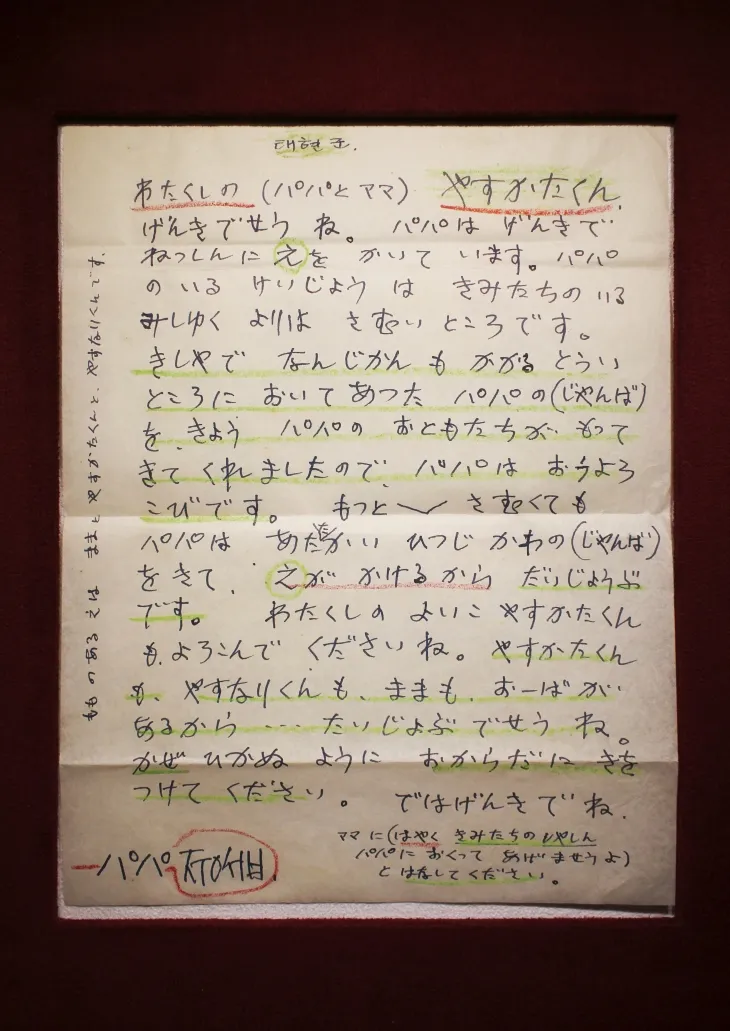 태현군.
わたくしの (パパとママ) やすかたくん.
げんきでせう ね。 パパは げんきで
ねっしんに えを かいて います。パパ
の いる けいじょう は きみたちの いる
みしゆく よりは さむい ところです。
きしやで なんじかん も かかる とうい
ところに おいて あつた パパの(じやんば)
を、きよう パパの おともたちが もって
きて くれましたので、パパは おうよろ
こびです。 もっと〳〵 さむくても
パパは あたかい ひつじ かわの(じやんば)
をきて、えが かけるから だいじょうぶ
です。 わたくしの よいこ やすかたくん
も、よろこんで くださいね。 やすかたくん
も、やすなりくんも、ままも、おーばが
あるから ‥‥ たいじょぶ でせう ね。
かぜ ひかぬ ように おからだに きを
つけて ください。 ではげんきで ね.
ママに(はやく きみたちの しやしん
パパに おくって あげませうよ)
と はなしてください。
パパ ㅈㅜㅇㅅㅓㅂ.
もものあるえは ままと やすかたくんと、やすなりくんです.